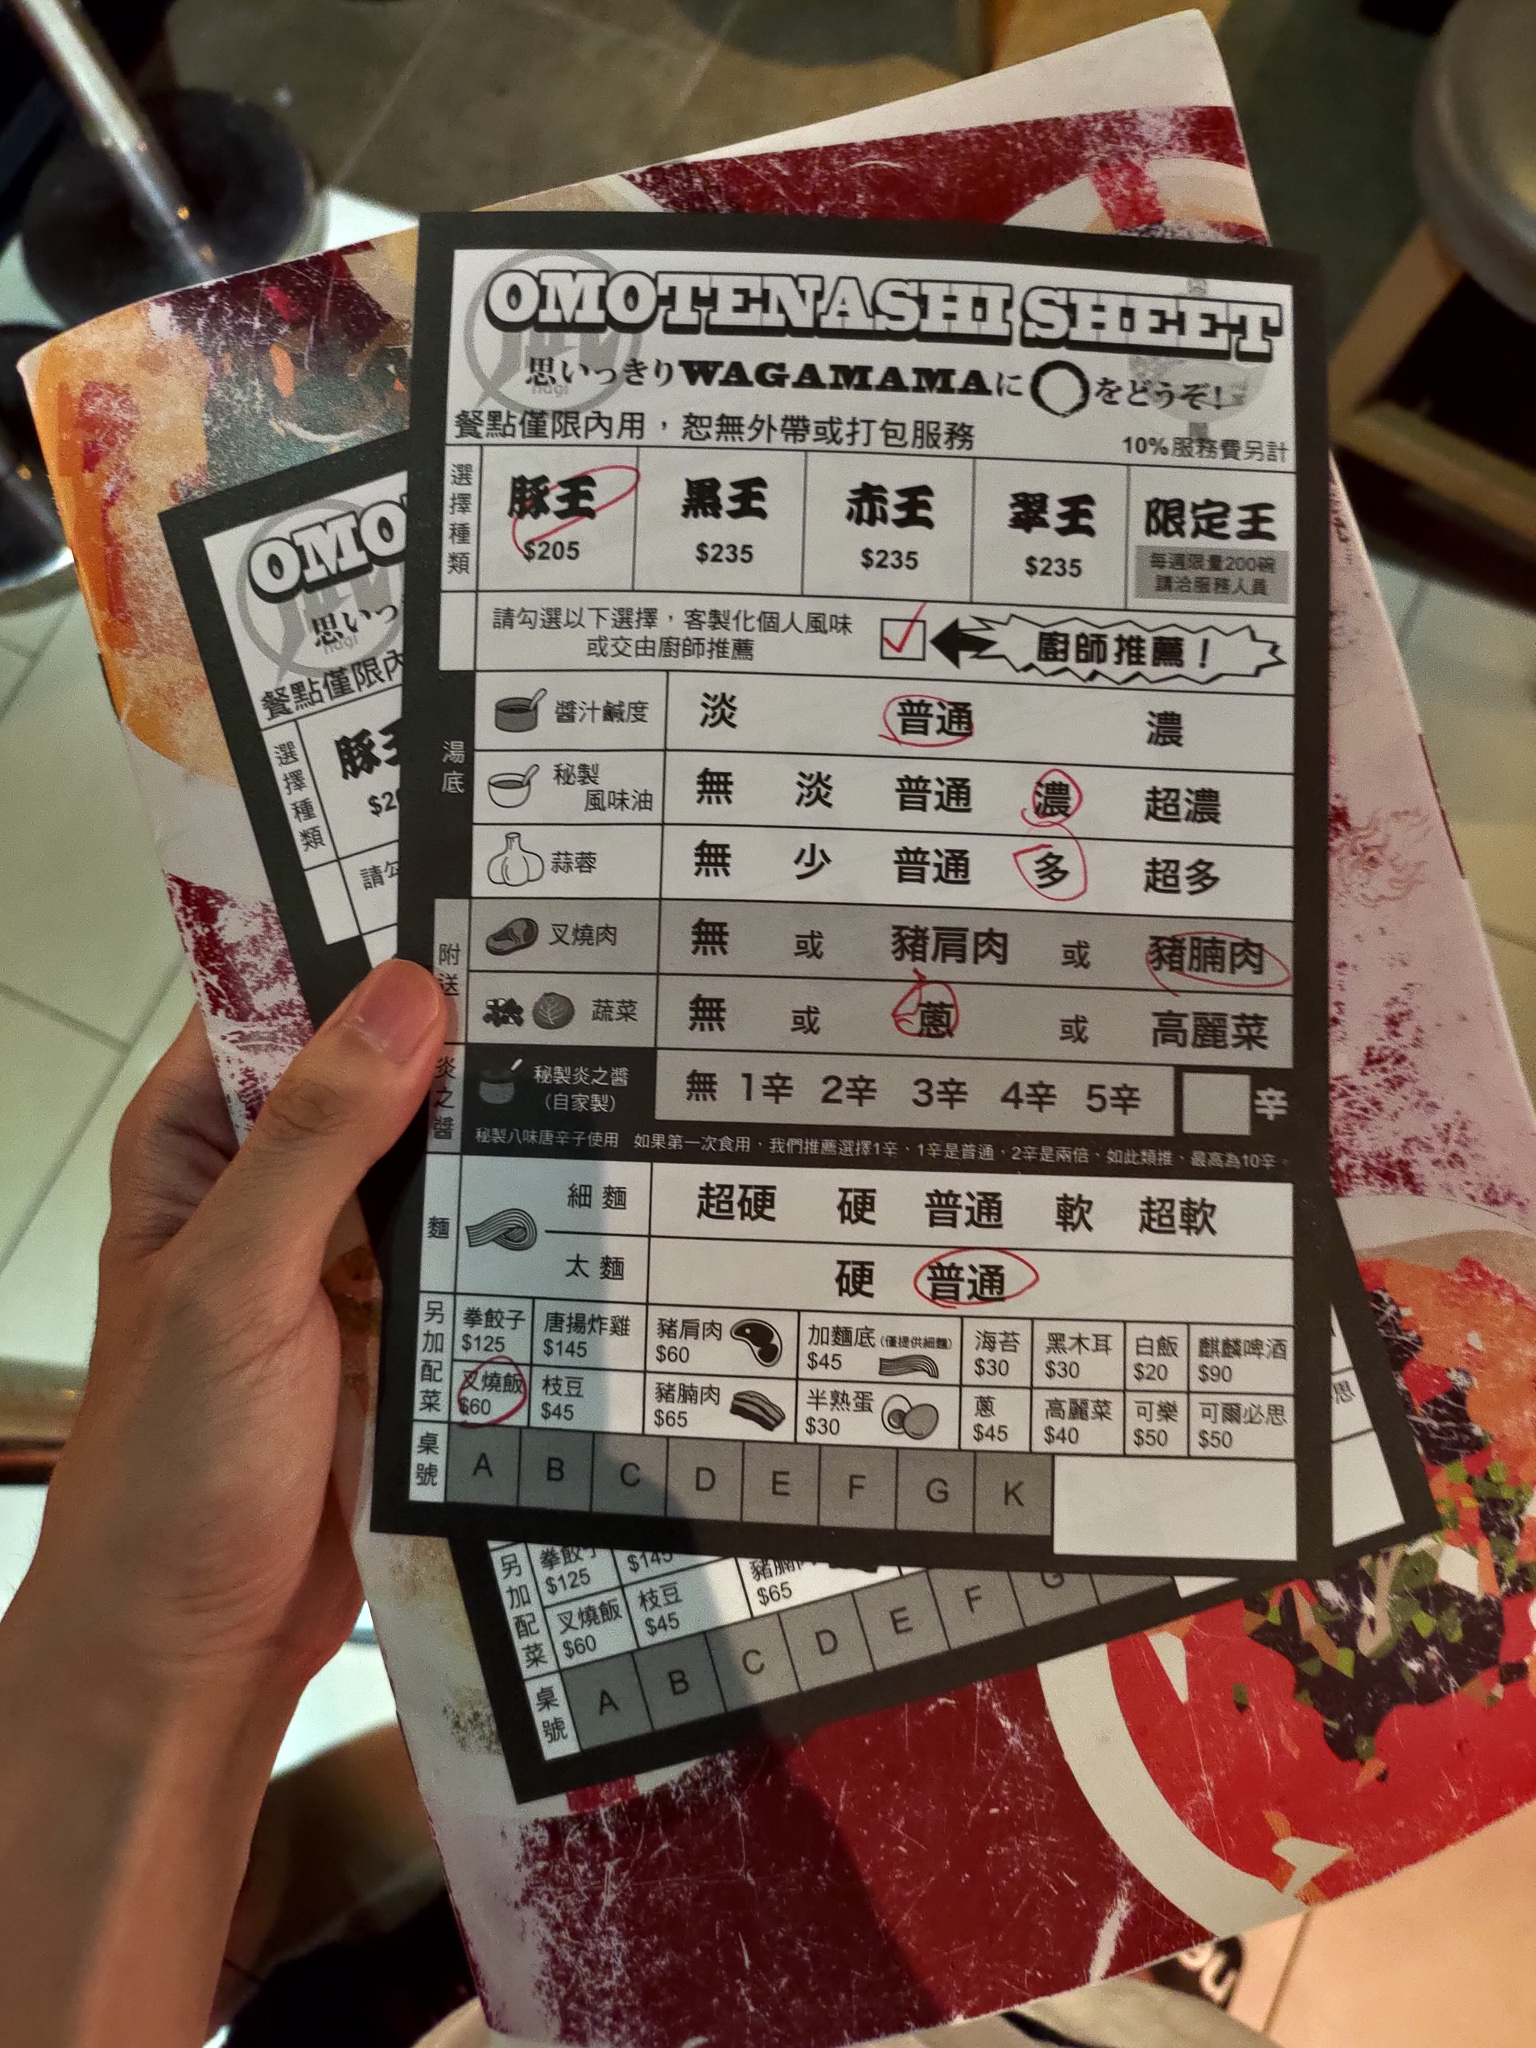 OMOTENASHI SHEET
思いっきりWAGAMAMAに◯をどうぞ!
餐點僅限內用，恕無外帶或打包服務
10%服務費另計
選擇種類
豚王 黑王 赤王 翠王 限定王
$205 $235 $235 $235
每週限量200碗
請洽服務人員
請勾選以下選擇，客製化個人風味
或交由廚師推薦
廚師推薦！
湯底
醬汁鹹度 淡 普通 濃
秘製
風味油 無 淡 普通 濃 超濃
蒜蓉 無 少 普通 多 超多
附送
叉燒肉 無 或 豬肩肉 或 豬腩肉
蔬菜 無 或 蔥 或 高麗菜
炎之醬
秘製炎之醬
(自家製)
無 1辛 2辛 3辛 4辛 5辛 辛
秘製八味唐辛子使用 如果第一次食用、我們推薦選擇1辛、1辛是普通、2辛是兩倍、如此類推、最高為10辛。
麵
細麵 超硬 硬 普通 軟 超軟
太麵 硬 普通
另加配菜
拳餃子 唐揚炸雞 豬肩肉 加麵底(僅提供細麵) 海苔 黑木耳 白飯 麒麟啤酒
$125 $145 $60 $45 $30 $30 $20 $90
叉燒飯 枝豆 豬腩肉 半熟蛋 蔥 高麗菜 可樂 可爾必思
$60 $45 $65 $30 $45 $40 $50 $50
桌號
A B C D E F G K
OMO
思いっ
餐點僅限內
選擇種類
豚王
$20
請勾
思
另加配菜
拳餃子
$125 $145
豬腩肉
$65
叉燒飯 枝豆
$60 $45
桌號
A B C D E F G